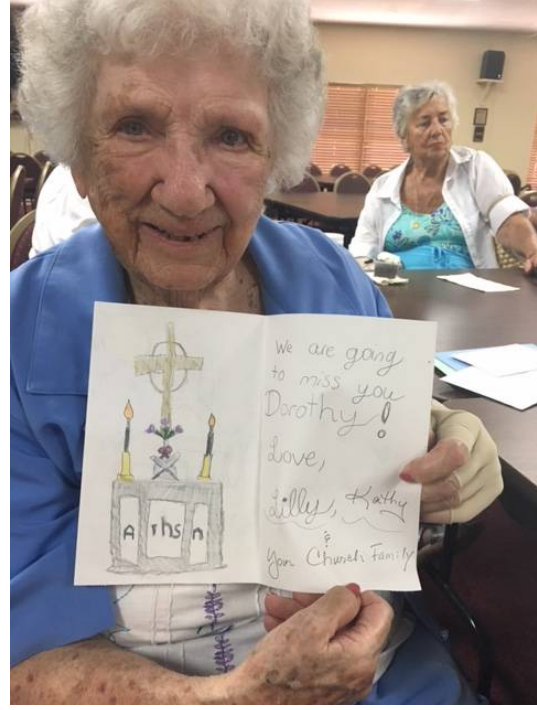 A ihs n
We are going
to miss you
Dorothy!
Love,
Lilly, Kathy
&
Your Church Family